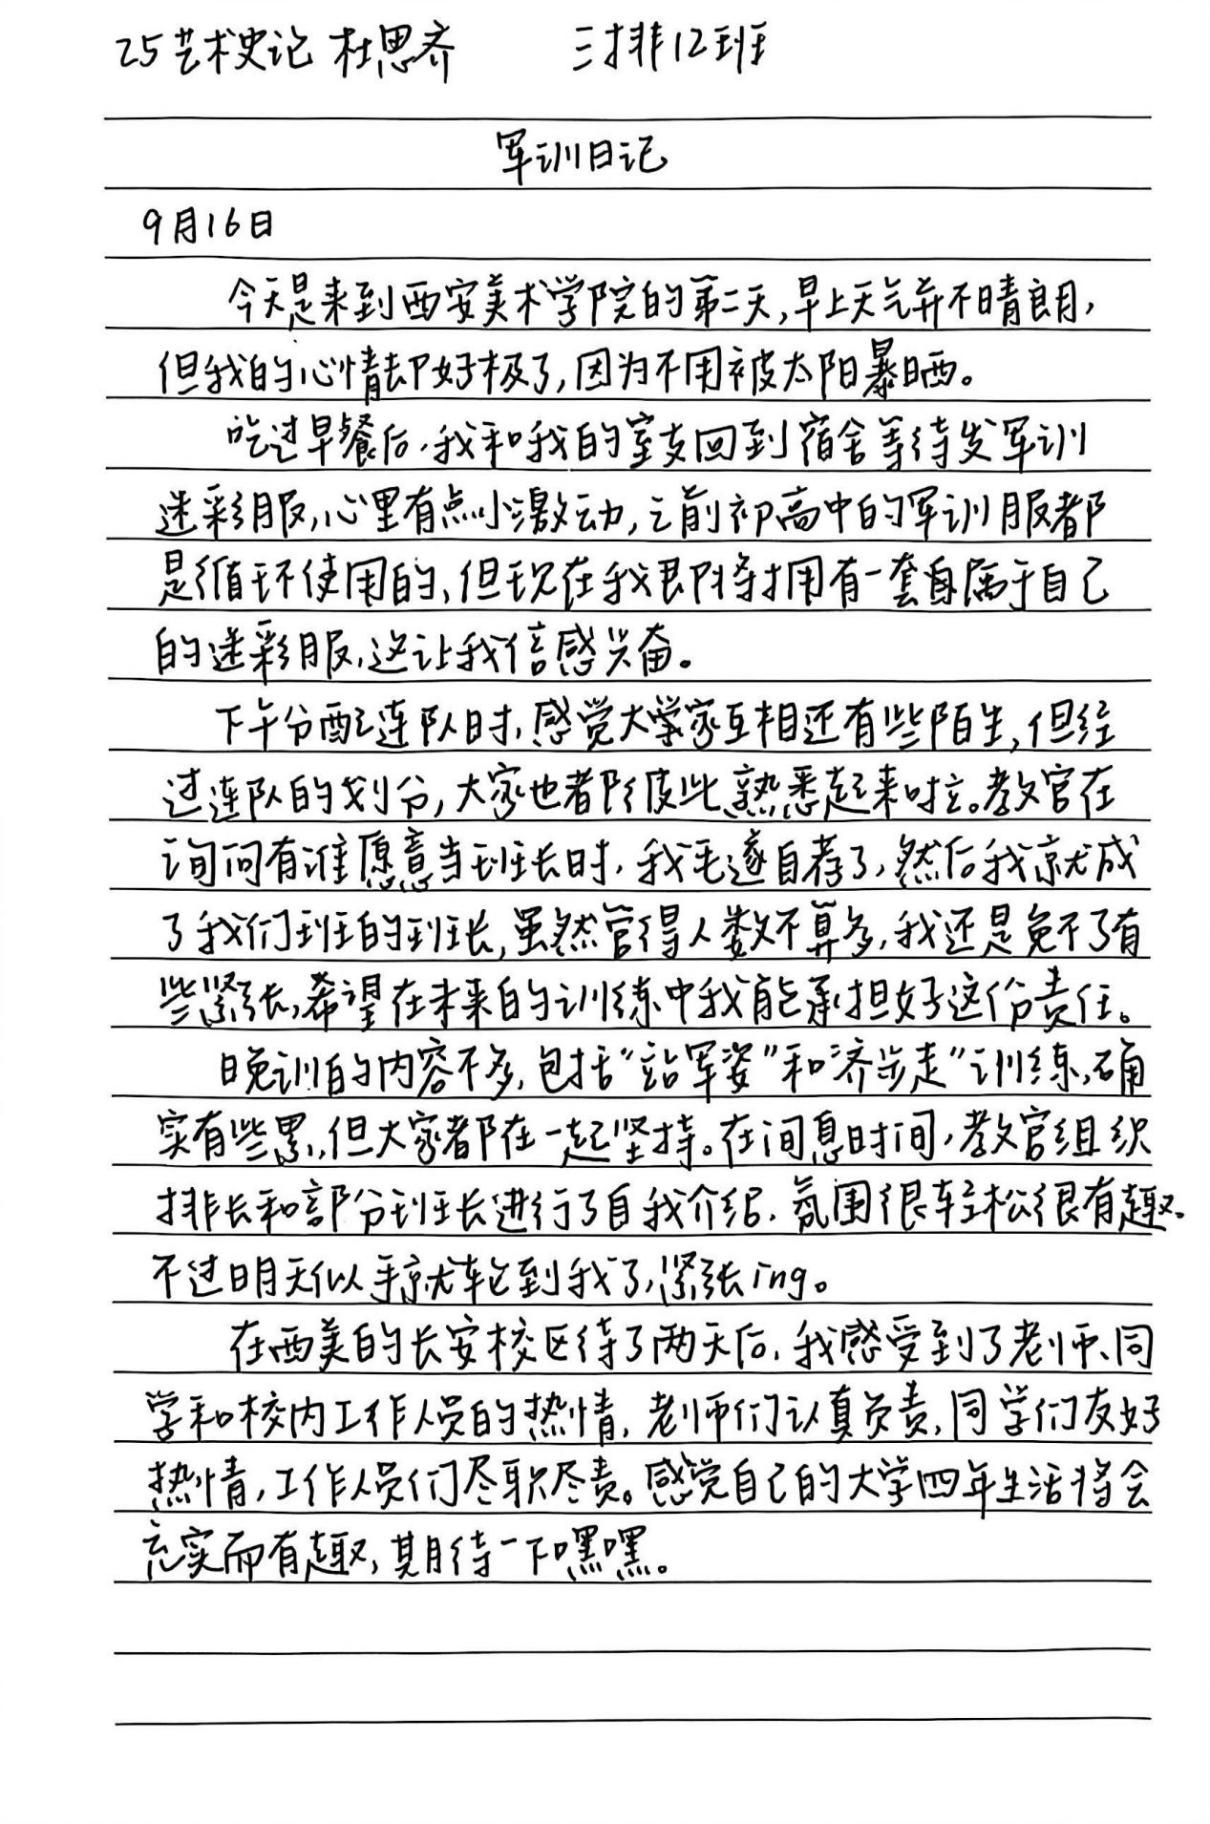 25艺术史论 杜思齐 三排12班
军训日记
9月16日
今天是来到西安美术学院的第二天,早上天气并不晴朗,
但我的心情却好极了,因为不用被太阳暴晒。
吃过早餐后,我和我的室友回到宿舍等待发军训
迷彩服,心里有点小激动,之前初高中的军训服都
是循环使用的,但现在我即将拥有一套自属于自己
的迷彩服,这让我倍感兴奋。
下午分配连队时,感觉大学家互相还有些陌生,但经
过连队的划分,大家也都彼此熟悉起来啦。教官在
询问有谁愿意当班长时,我毛遂自荐了,然后我就成
了我们班的班长,虽然管得人数不算多,我还是免不了有
些紧张,希望在未来的训练中我能承担好这份责任。
晚训的内容不多,包括“站军姿”和“济步走”训练,确
实有些累,但大家都在一起坚持。在间息时间,教官组织
排长和部分班长进行了自我介绍,氛围很轻松很有趣。
不过明天似乎就轮到我了,紧张ing。
在西美的长安校区待了两天后,我感受到了老师、同
学和校内工作人员的热情,老师们认真负责,同学们友好
热情,工作人员们尽职尽责。感觉自己的大学四年生活将会
充实而有趣,期待一下嘿嘿。